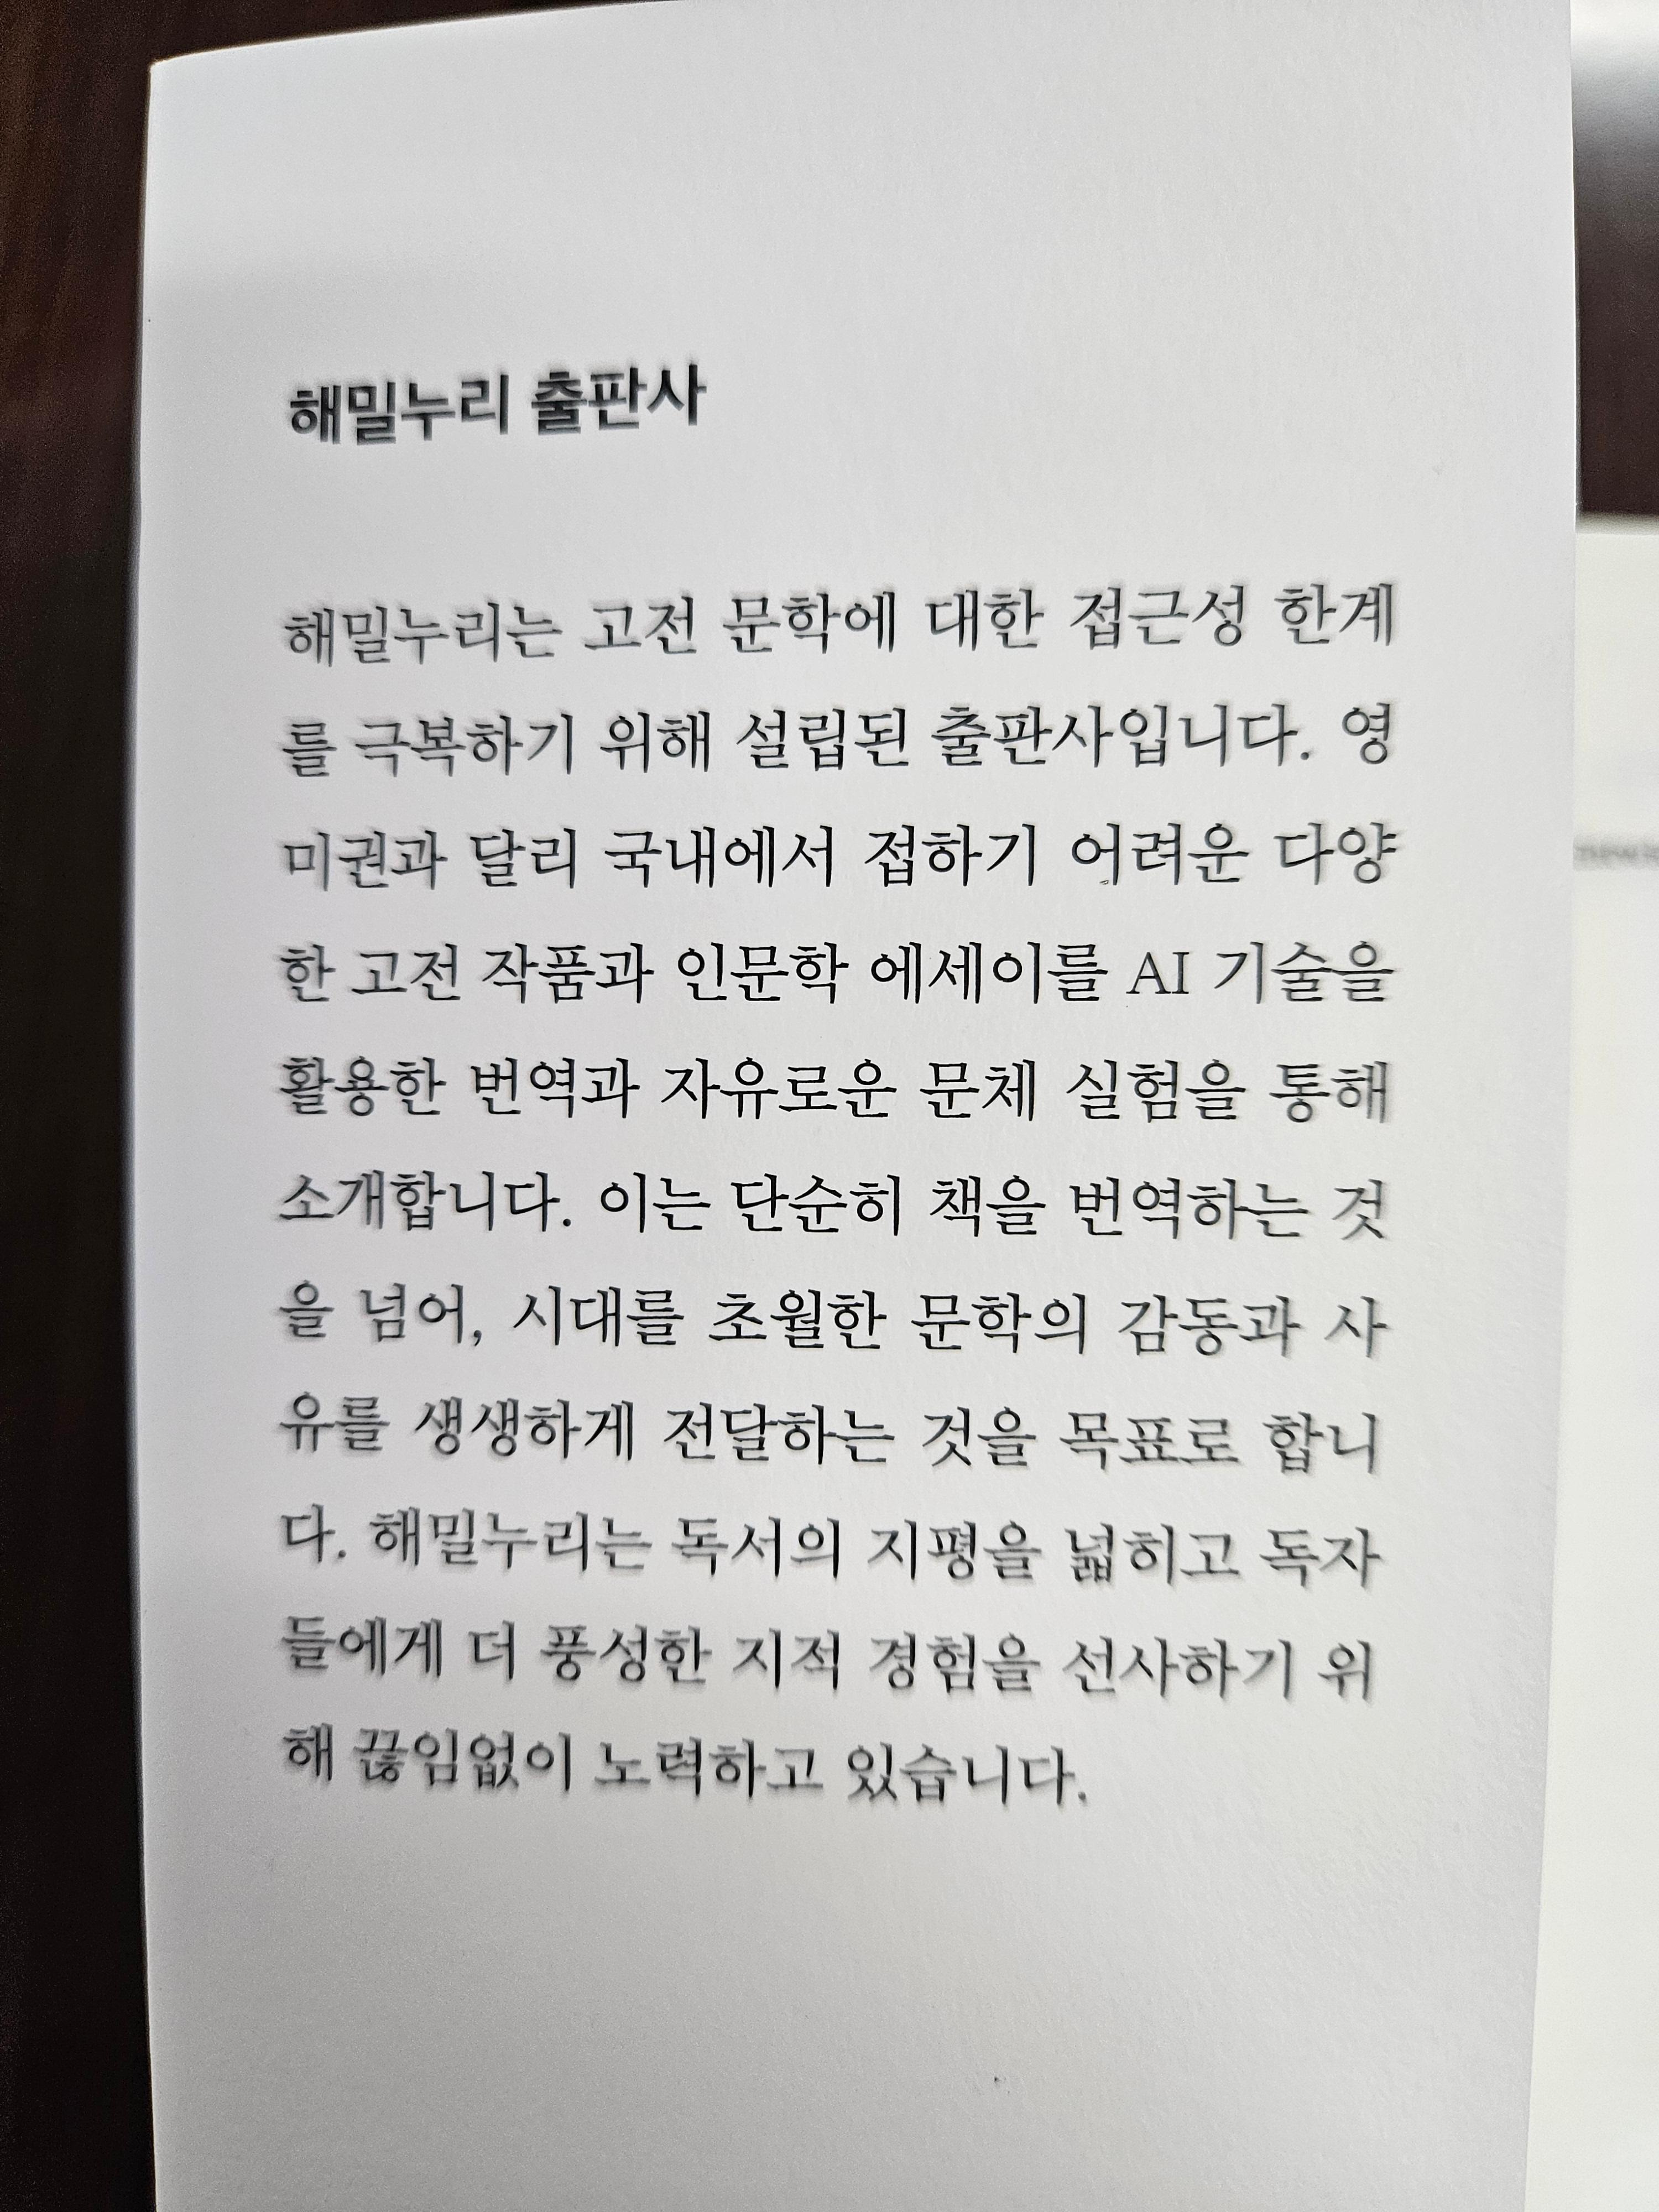 해밀누리 출판사
해밀누리는 고전 문학에 대한 접근성 한계
를 극복하기 위해 설립된 출판사입니다. 영
미권과 달리 국내에서 접하기 어려운 다양
한 고전 작품과 인문학 에세이를 AI 기술을
활용한 번역과 자유로운 문체 실험을 통해
소개합니다. 이는 단순히 책을 번역하는 것
을 넘어, 시대를 초월한 문학의 감동과 사
유를 생생하게 전달하는 것을 목표로 합니
다. 해밀누리는 독서의 지평을 넓히고 독자
들에게 더 풍성한 지적 경험을 선사하기 위
해 끊임없이 노력하고 있습니다.